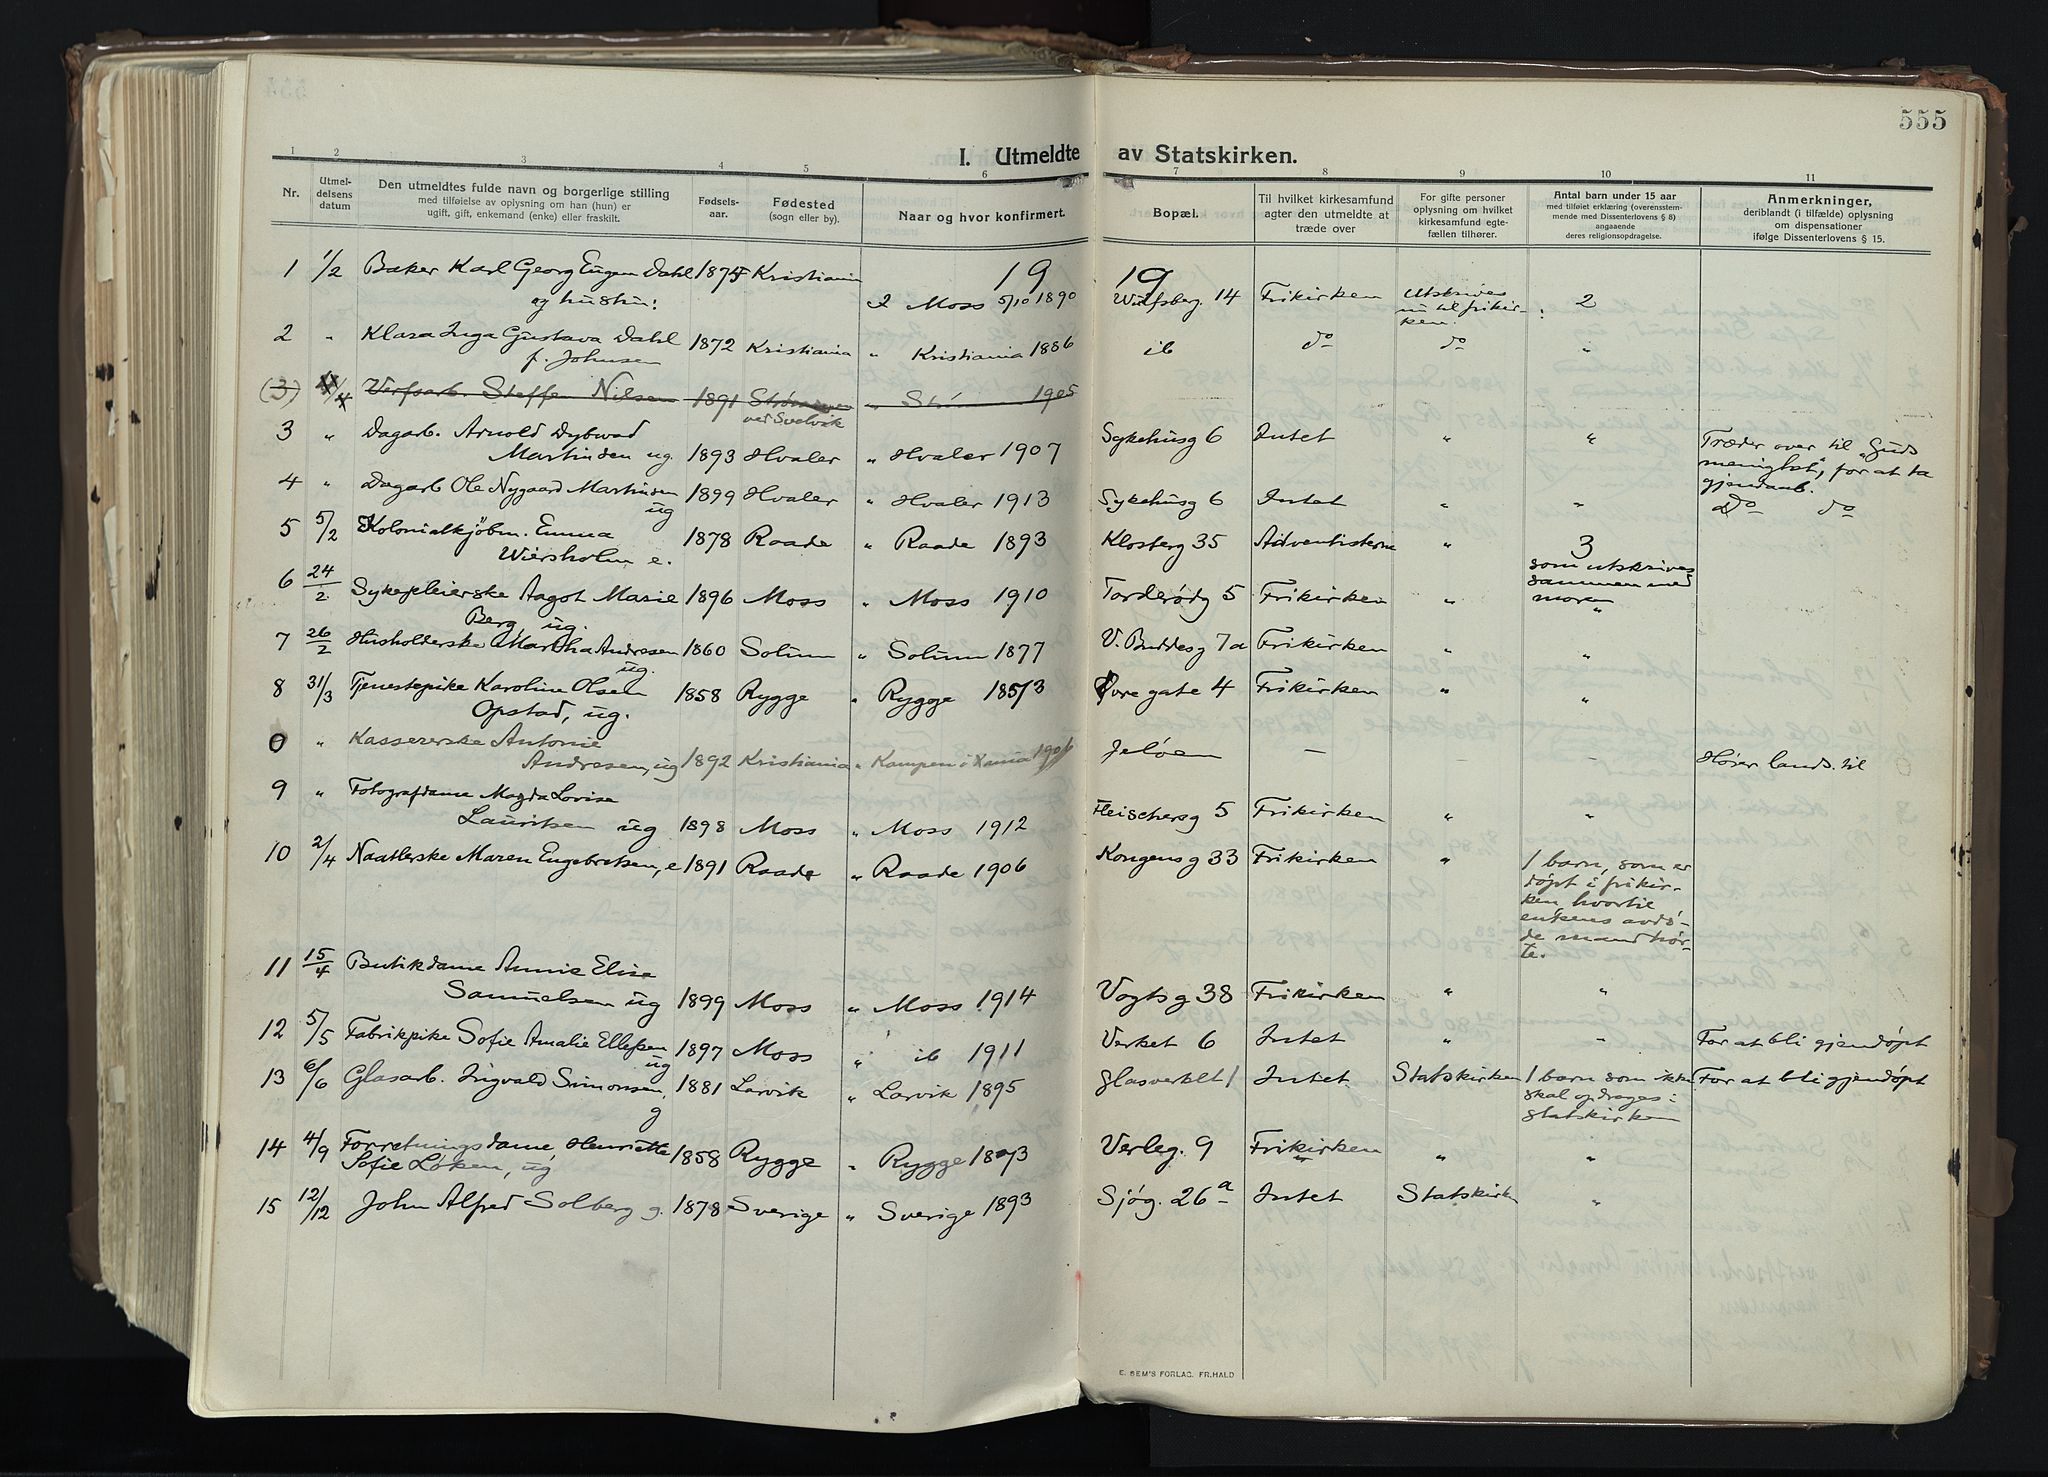 555
I. Utmeldte av Statskirken.
1 2 3 4 5 6 7 8 9 10 11
Nr.
Utmel-
delsens
datum
Den utmeldtes fulde navn og borgerlige stilling
med tilføielse av oplysning om han (hun) er
ugift, gift, enkemand (enke) eller fraskilt.
Fødsels-
aar.
Fødested
(sogn eller by).
Naar og hvor konfirmert.
Bopæl.
Til hvilket kirkesamfund
agter den utmeldte at
træde over
For gifte personer
oplysning om hvilket
kirkesamfund egte-
fællen tilhører.
Antal barn under 15 aar
med tilføiet erklæring (overensstem-
mende med Dissenterlovens § 8)
angaaende
deres religionsopdragelse.
Anmerkninger,
deriblandt (i tilfælde) oplysning
om dispensationer
ifølge Dissenterlovens § 15.
19 19
1 1/2 Baker Karl Georg Eugen Dahl 1874 Kristiania Moss 5/10 1890 Wulfsberg. 14 Frikirken Utskrives 2
og hustru: til frikir-
ken.
2 " Klara Inga Gustava Dahl 1872 Kristiania " Kristiania 1886 ib do do "
f. Johnsen
(3) Verfsarb. Steffen Nilsen 1891 1905
ved Svelvik
3 " Dagarb. Arnold Dybwad Sykehusg 6 Intet " " Træder over til "Guds
Martinsen ug. 1893 Hvaler " Hvaler 1907 menighet", for at ta
gjendaab.
4 " Dagarb Ole Nygaard Martinsen 1899 Hvaler " Hvaler 1913 Sykehusg 6 Intet " " Do do
ug
5 5/2 Kolonialkjøbm. Emma 1878 Raade " Raade 1893 Klosterg 35 Adventisterne " 3
Wiersholm e. som utskrives
sammen med
moren
6 24/2 Sykepleierske Aagot Marie 1896 Moss " Moss 1910 Torderødg 5 Frikirken " "
Berg, ug.
7 26/2 Husholderske Martha Andresen 1860 Solum " Solum 1877 V. Buddesg 7a Frikirken " "
ug.
8 31/3 Tjenestepike Karoline Olsen 1858 Rygge " Rygge 1873 Øvre gate 4 Frikirken " "
Opstad, ug.
0 " Kassererske Antonie Jeløen –
Andresen, ug 1892 Kristiania " Kampen i Xania 1906 – – Hører lands. til
9 " Fotografdame Magda Lovise
Lauritsen ug 1898 Moss " Moss 1912 Fleischersg 5 Frikirken " "
10 2/4 Naatlerske Maren Engebretsen, e 1891 Raade " Raade 1906 Kongensg 33 Frikirken " 1 barn, som er
døpt i frikir-
ken, hvortil
enkens avdø-
de mand hør-
te.
11 15/4 Butikdame Annie Elise
Samuelsen ug 1899 Moss " Moss 1914 Vogtsg 38 Frikirken " "
12 5/5 Fabrikpike Sofie Amalie Ellefsen 1897 Moss " ib 1911 Verket 6 Intet " " For at bli gjendøpt
ug
13 6/6 Glasarb. Ingvald Simonsen, 1881 Larvik " Larvik 1895 Glasverket 1 Intet Statskirken 1 barn som ikke For at bli gjendøpt
g skal opdrages i
statskirken
14 4/9 Forretningsdame Henriette 1858 Rygge " Rygge 1873 Verleg. 9 Frikirken " "
Sofie Løken, ug
15 12/12 John Alfred Solberg g. 1878 Sverige " Sverige 1893 Sjøg. 26 a Intet Statskirk "
E. SEM'S FORLAG. FR.HALD